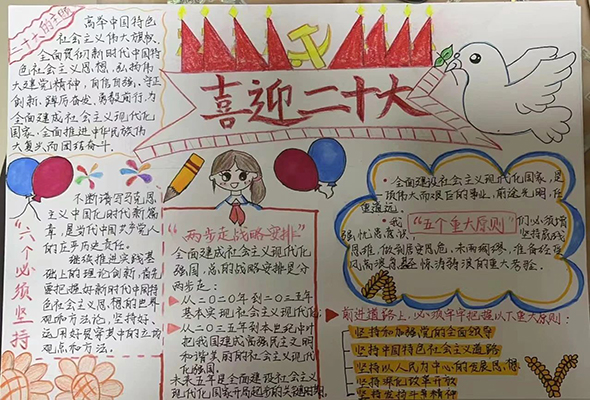 二十大的主题
高举中国特色
社会主义伟大旗帜,
全面贯彻新时代中国特
色社会主义思想,弘扬伟
大建党精神,自信自强、守正
创新,踔厉奋发、勇毅前行,为
全面建成社会主义现代化
国家、全面推进中华民族伟
大复兴而团结奋斗。
喜迎二十大
"六个必须坚持"
不断谱写马克思
主义中国化时代新篇
章,是当代中国共产党人
的庄严历史责任。
继续推进实践基
础上的理论创新,首先
要把握好新时代中国特
色社会主义思想的世界
观和方法论,坚持好、
运用好贯穿其中的立场
观点和方法。
"两步走战略安排"
全面建成社会主义现代化
强国,总的战略安排是分
两步走:
从二〇二〇年到二〇三五年
基本实现社会主义现代化;
从二〇三五年到本世纪中叶
把我国建成富强民主文明
和谐美丽的社会主义现代
化强国。
未来五年是全面建设社会主义
现代化国家开局起步的关键时期。
全面建设社会主义现代化国家,是
一项伟大而艰巨的事业,前途光明,任
重道远。
"五个重大原则"
我们必须增
强忧患意识,坚持底线
思维,做到居安思危、未雨绸缪,准备经受
风高浪急甚至惊涛骇浪的重大考验。
前进道路上,必须牢牢把握以下重大原则:
坚持和加强党的全面领导
坚持中国特色社会主义道路
坚持以人民为中心的发展思想
坚持深化改革开放
坚持发扬斗争精神